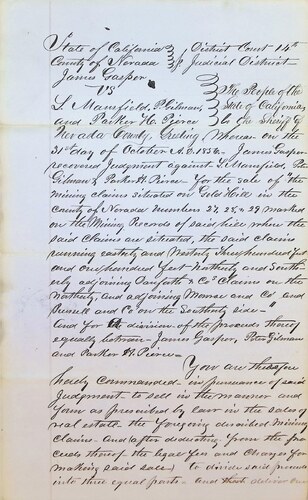 State of California } District Court 14th
County of Nevada } Judicial District
James Gasper The People of the
VS State of California,
L. Mansfield, P. Gilman, to the Sheriff of
and Parker H. Pierce
Nevada County, Greeting Whereas on the
31st day of October A.D. 1856 - James Gasper
recovered Judgment against L. Mansfield, Peter
Gilman & Parker H. Pierce - for the sale of "the
mining claims situated on Gold Hill in the
County of Nevada Numbers 27, 28, & 29 marked
on the Mining Records of said hill where the
said Claims are situated, the said claims
running easterly and Westerly Three hundred feet
and one hundred feet Northerly and South
erly adjoining & Co Claims on the
Northerly, and adjoining and Co and
Russell and Co on the Southerly side"
And for the division of the proceeds thereof
equally between - James Gasper, Peter Gilman
and Parker H. Pierce -
You are therefore
hereby commanded in pursuance of said
Judgment to sell in the manner and
form as prescribed by law in the sales of
real estate the foregoing described mining
Claims. And after deducting from the pro
ceeds thereof the legal fees and Charges for
making said sale, to divide said proceeds
into three equal parts - and then deliver one